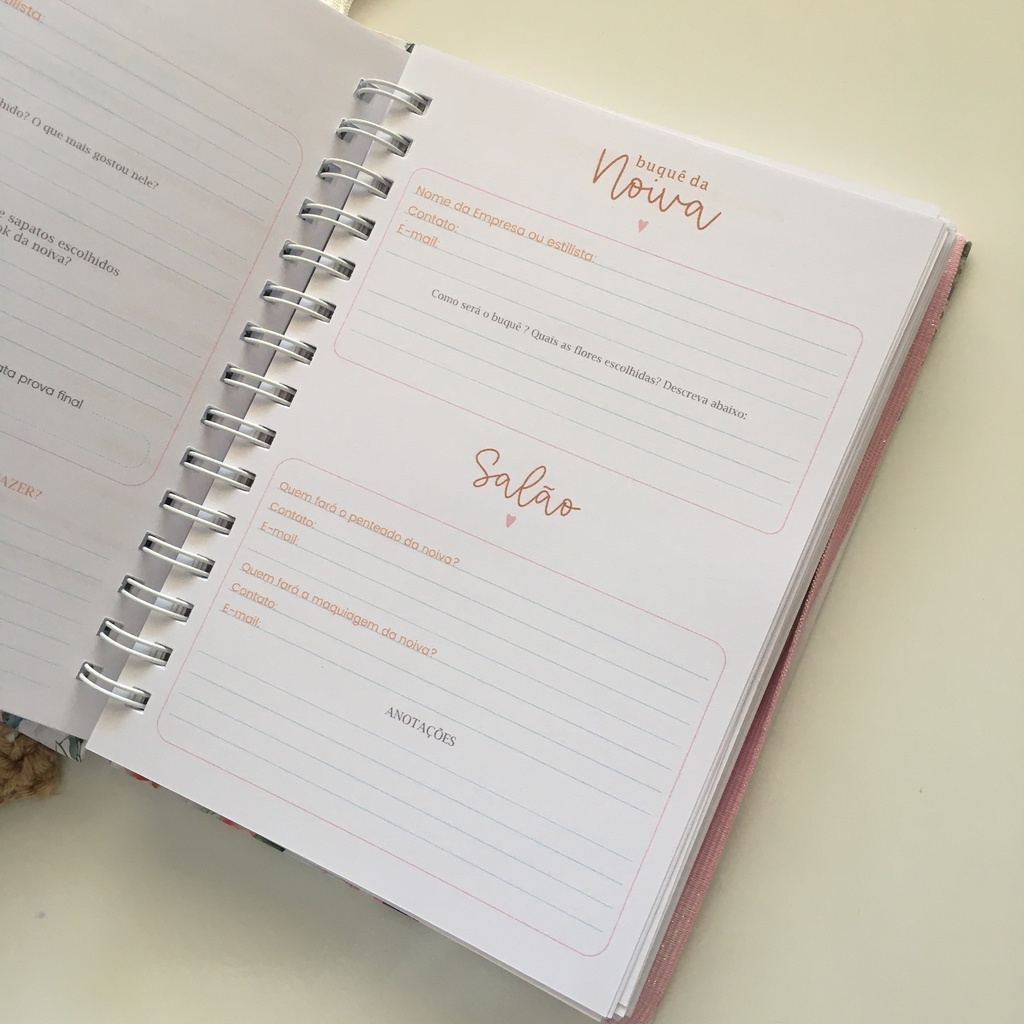 prova final
O que mais gostou nele?
sapatos escolhidos
da noiva?
buquê da
Noiva
Nome da Empresa ou estilista:
Contato:
E-mail:
Como será o buquê ? Quais as flores escolhidas? Descreva abaixo:
Salão
Quem fará o penteado da noiva?
Contato:
E-mail:
Quem fará a maquiagem da noiva?
Contato:
E-mail:
ANOTAÇÕES